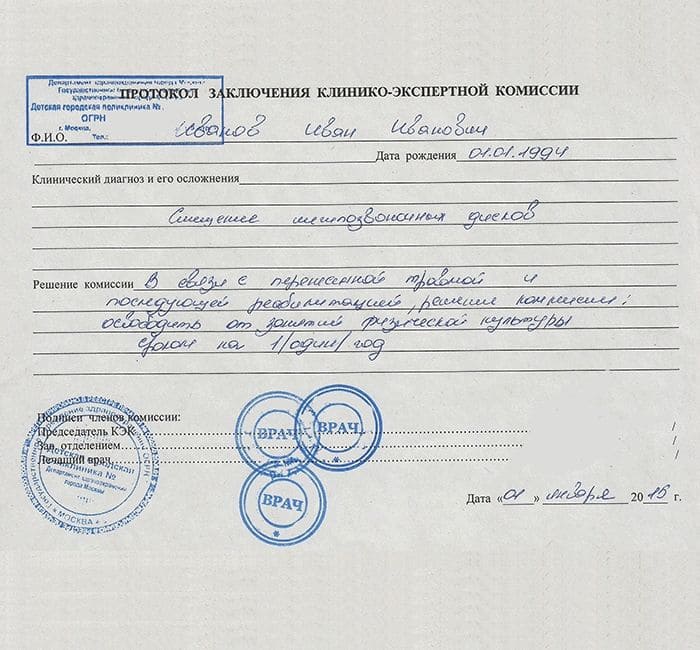 Департамент здравоохранения города Москвы
Государственное
здравоохранения
Детская городская поликлиника №
ОГРН
г. Москва,
Тел.:
ПРОТОКОЛ ЗАКЛЮЧЕНИЯ КЛИНИКО-ЭКСПЕРТНОЙ КОМИССИИ
Ф.И.О. Иванов Иван Иванович
Дата рождения 01.01.1994
Клинический диагноз и его осложнения
Смещение межпозвоночных дисков
Решение комиссии В связи с перенесенной травмой и
последующей реабилитацией, решение комиссии:
освободить от занятий физической культуры
сроком на 1/один/год
Подписи членов комиссии:
Председатель КЭК
Зав. отделением
Лечащий врач
Детской городской
поликлиника №
Департамент здравоохранения
города Москвы
* МОСКВА *
ВРАЧ
ВРАЧ
ВРАЧ
Дата «01» января 2015 г.